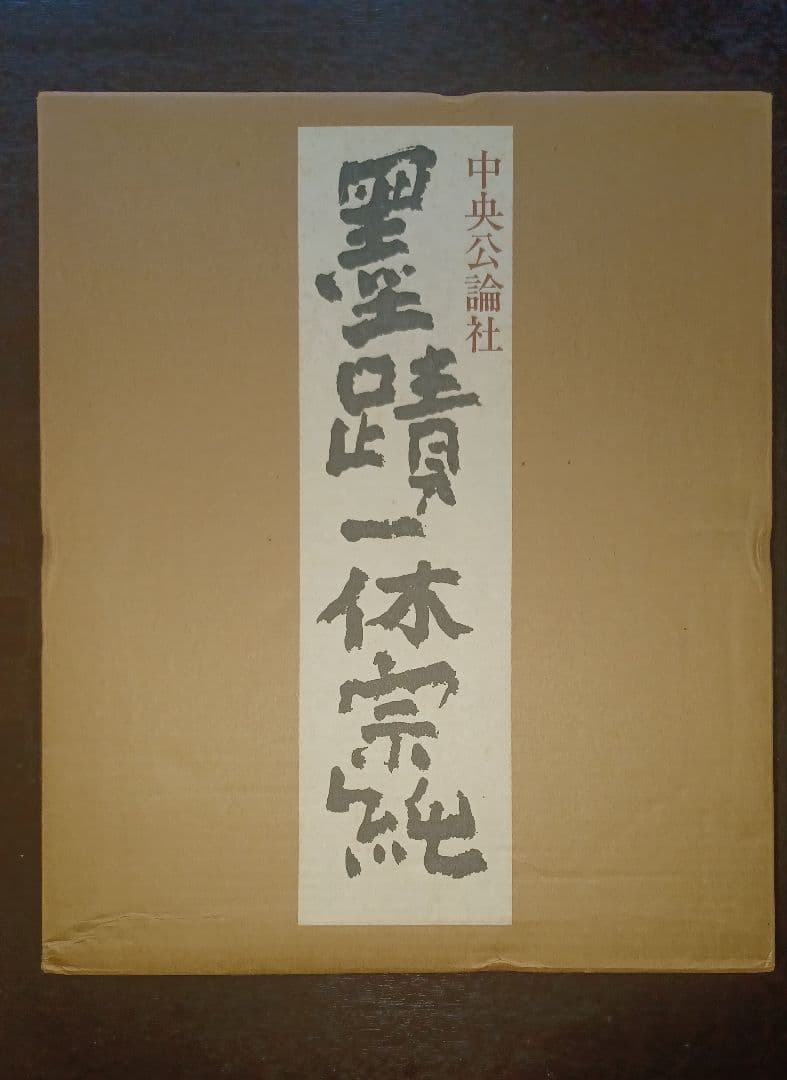 中央公論社
墨蹟一休宗純